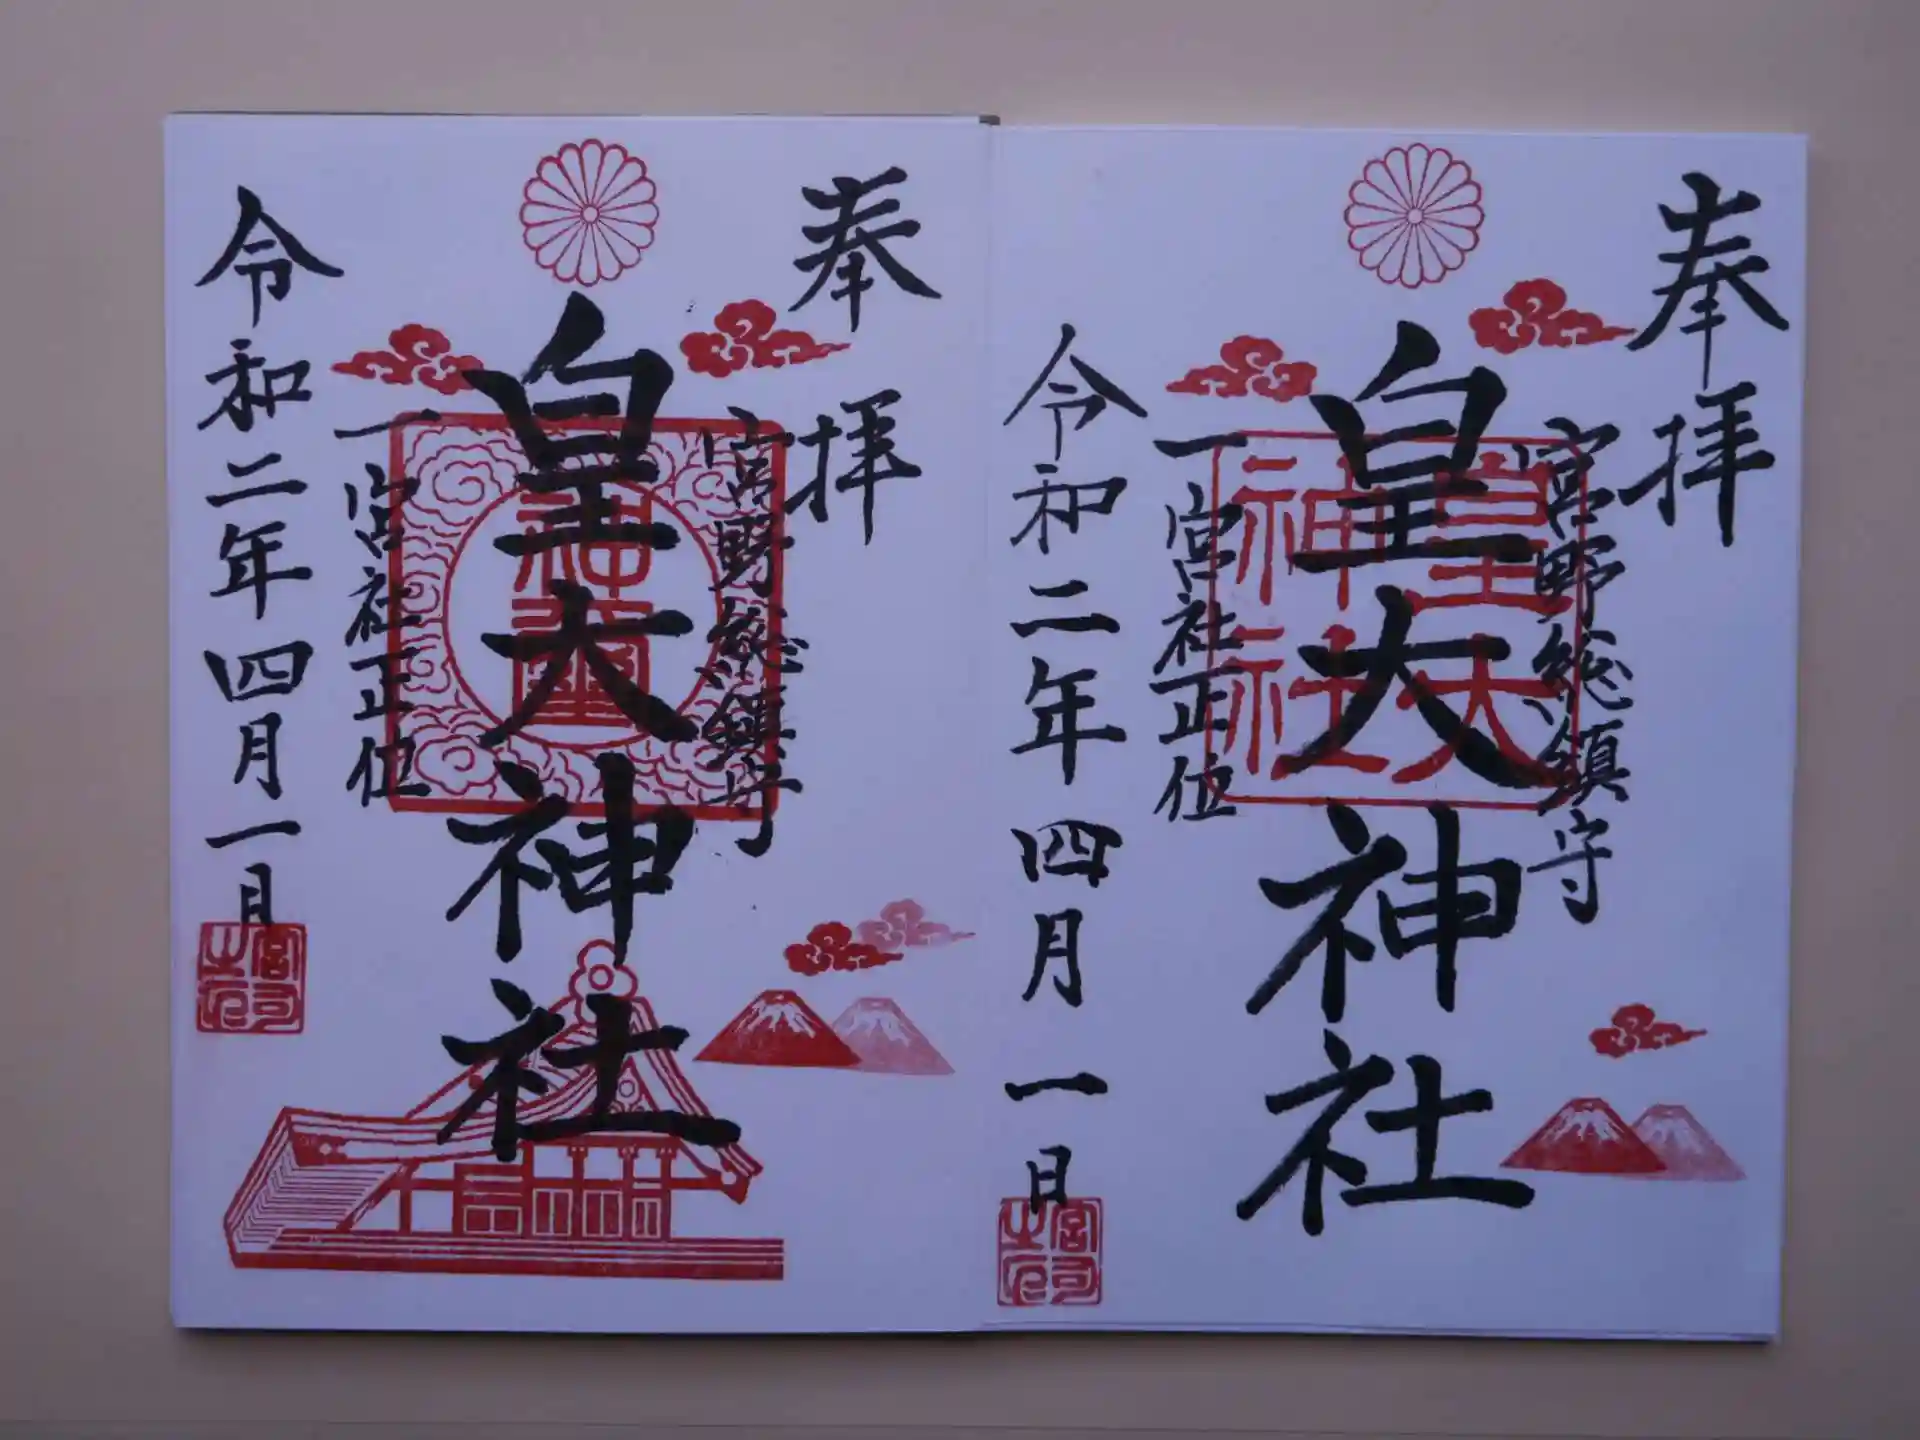 奉拝
宮野総鎮守
皇大神社
皇大
神社
一宮社正位
令和二年四月一日
宮司
之印
奉拝
宮野総鎮守
皇大神社
神璽
一宮社正位
令和二年四月一日
宮司
之印